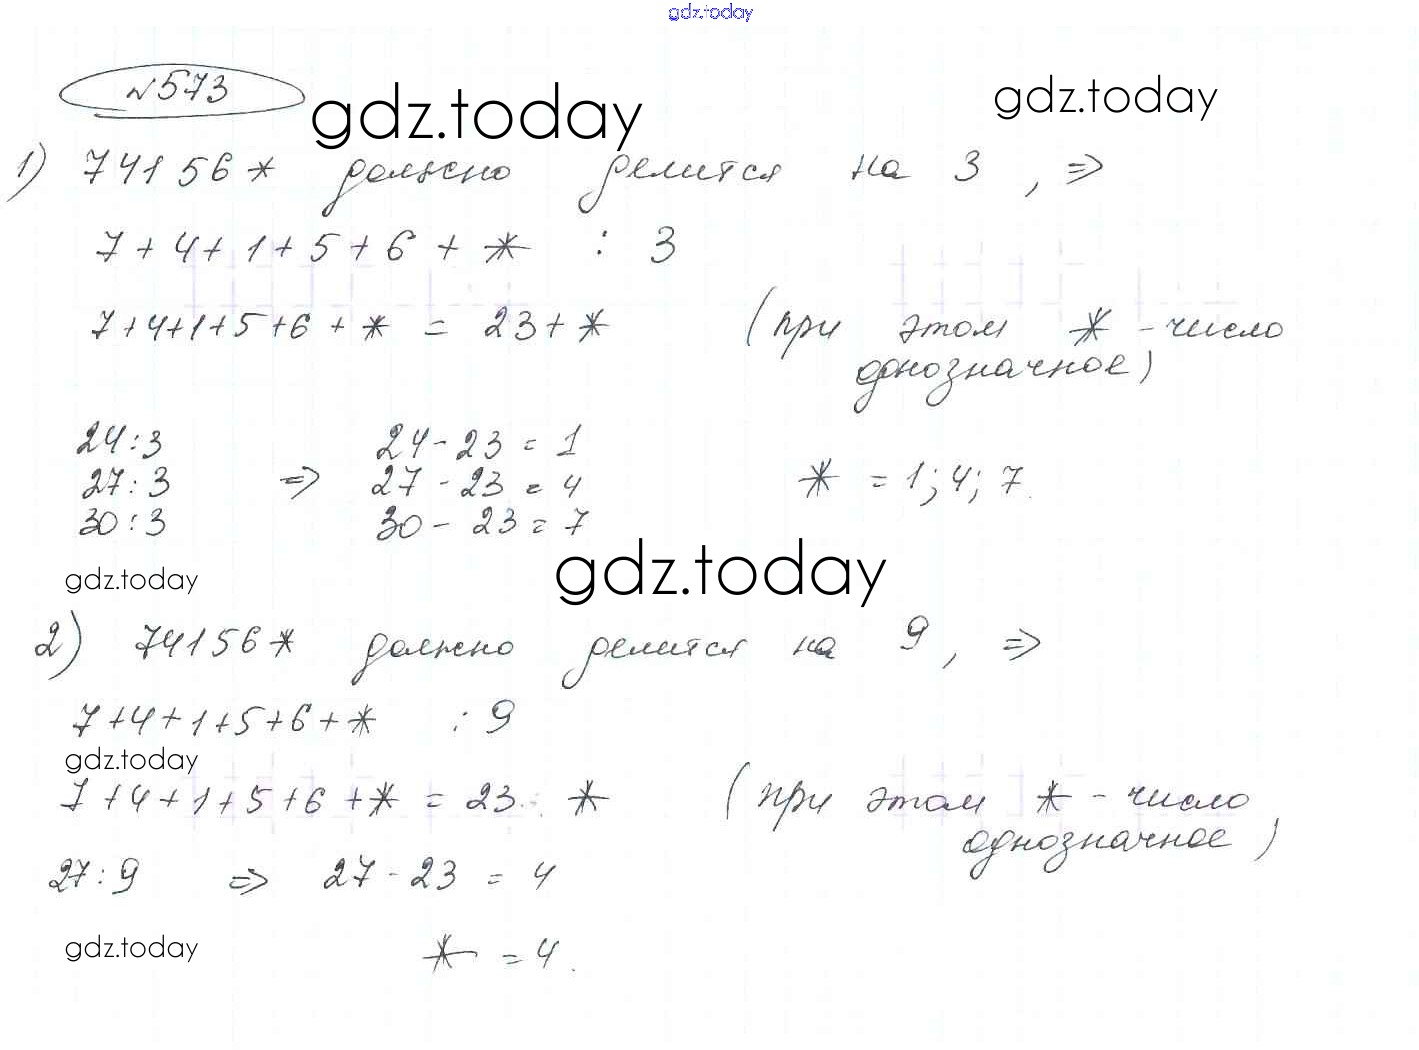 gdz.today
№573
gdz.today
gdz.today
1) 74156* должно делится на 3, =>
7+4+1+5+6+* : 3
7+4+1+5+6+* = 23+* (при этом * - число
однозначное)
24:3 24-23=1
27:3 => 27-23=4 * = 1; 4; 7.
30:3 30-23=7
gdz.today
gdz.today
2) 74156* должно делится на 9, =>
7+4+1+5+6+* : 9
gdz.today
7+4+1+5+6+* = 23 * (при этом * - число
однозначное)
27:9 => 27-23=4
gdz.today
* = 4.